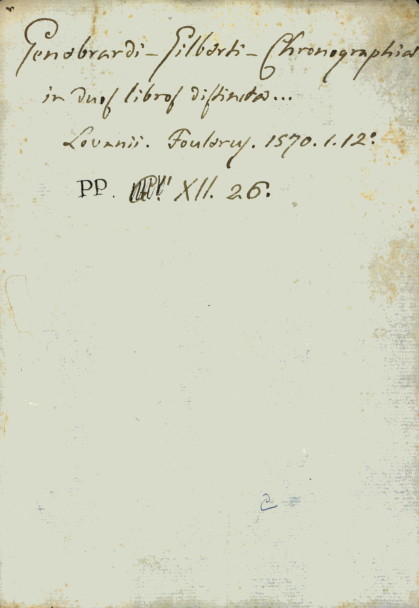 Genebrardi - Gilberti - Chronographia
in duos libros distincta...
Lovanii. Foulerus. 1570. 1. 12º
PP. XII. 26.